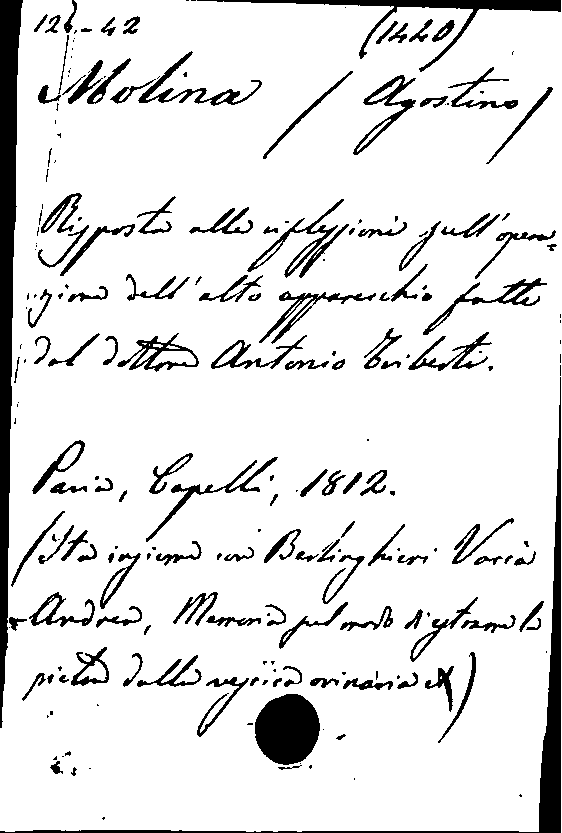 12 -42 (1420)
Molina / Agostino /
Risposta alle riflessioni sull'opera=
zione dell'alto apparecchio fatte
dal dottore Antonio
Pavia, Capelli, 1812.
(Sta insieme con Berlinghieri Vaccà
Andrea, Memoria sul modo di estrarre la
pietra dalla vescica orinaria)